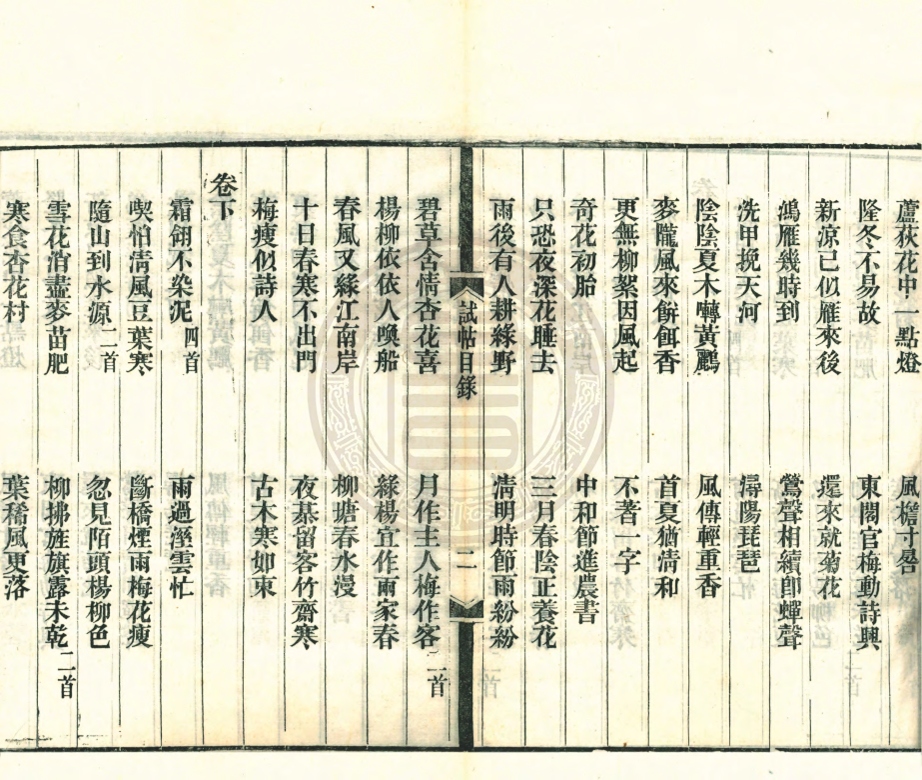 蘆荻花中一點燈　風檐寸晷
隆冬不易故　東閣官梅動詩興
新涼已似雁來後　還來就菊花
鴻雁幾時到　鶯聲相續卽蟬聲
洗甲挽天河　潯陽琵琶
陰陰夏木囀黃鸝　風傳輕重香
麥隴風來餠餌香　首夏猶淸和
更無柳絮因風起　不著一字
奇花初胎　中和節進農書
只恐夜深花睡去　三月春陰正養花
雨後有人耕綠野　淸明時節雨紛紛
試帖目錄　二
碧草含情杏花喜　月作主人梅作客二首
楊柳依依人喚船　綠楊宜作兩家春
春風又綠江南岸　柳塘春水漫
十日春寒不出門　夜棊留客竹齋寒
梅瘦似詩人　古木寒如束
卷下
霜翎不染泥四首　雨過溼雲忙
喫怕淸風豆葉寒　斷橋煙雨梅花瘦
隨山到水源二首　忽見陌頭楊柳色
雪花消盡麥苗肥　柳拂旌旗露未乾二首
寒食杏花村　葉稀風更落